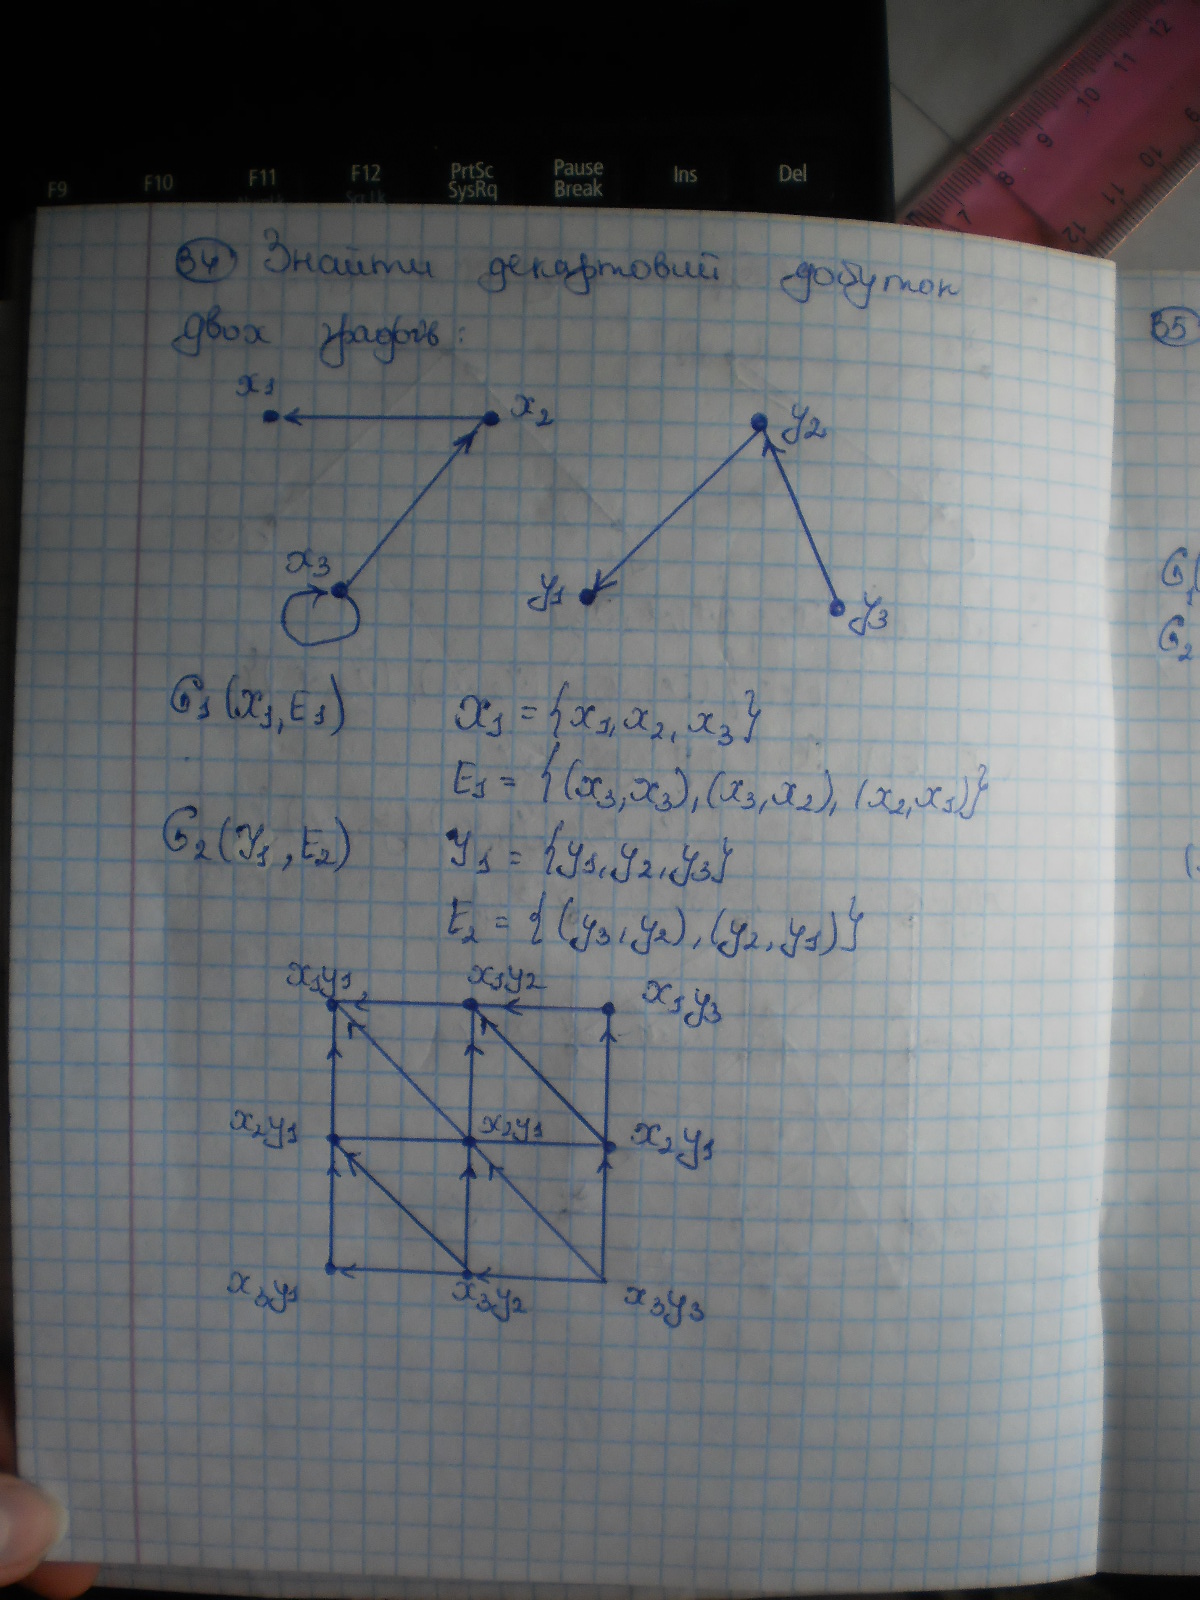 F9 F10 F11 F12 PrtSc SysRq Pause Break Ins Del
7 8 9 10 11 12
12 11 10 9
34 Знайти декартовий добуток
двох графів:
x1 x2 y2
x3 y1 y3
G1(X1, E1) X1 = {x1, x2, x3}
E1 = {(x3, x3), (x3, x2), (x2, x1)}
G2(Y1, E2) Y1 = {y1, y2, y3}
E2 = {(y3, y2), (y2, y1)}
x1y1 x1y2 x1y3
x2y1 x2y1 x2y1
x3y1 x3y2 x3y3
35
G1(
G2
(